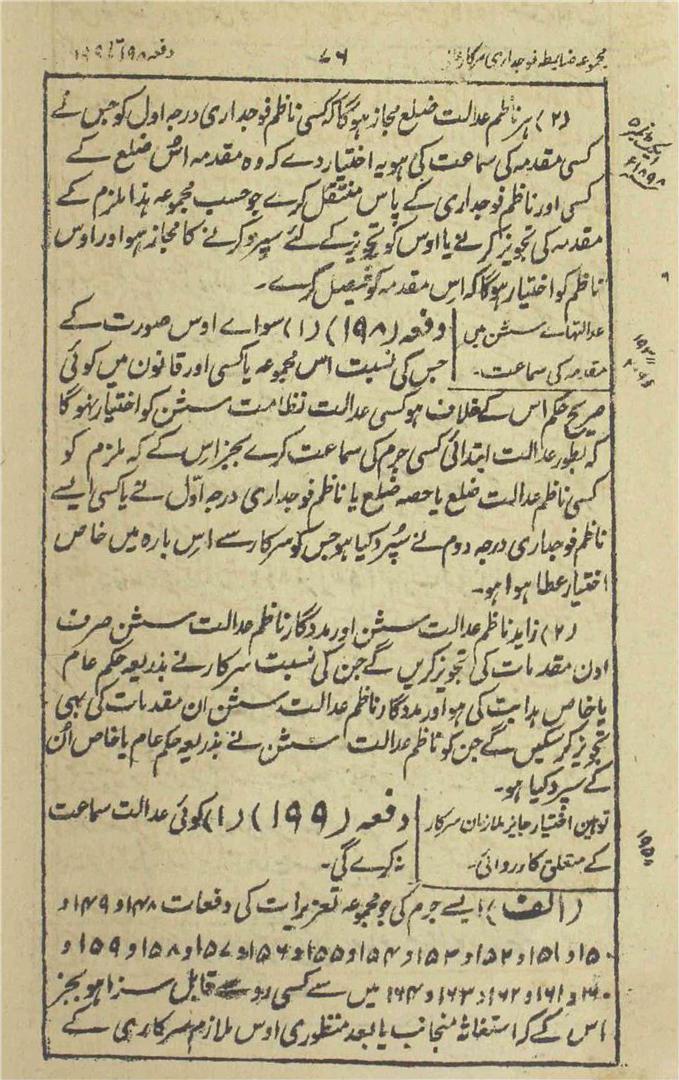 مجموعہ ضابطہ فوجداری سرکار
۷۶
دفعہ ۱۹۸ تا ۱۹۹
(۲) ہر ناظم عدالت ضلع مجاز ہوگا کہ کسی ناظم فوجداری درجہ اول کو جس نے
کسی مقدمہ کی سماعت کی ہو یہ اختیار دے کہ وہ مقدمہ اس ضلع کے
کسی اور ناظم فوجداری کے پاس منتقل کرے جو حسب مجموعہ ہذا ملزم کے
مقدمہ کی تجویز کرنے یا اوس کو تجویز کے لئے سپرد کرنے کا مجاز ہو اور اوس
ناظم کو اختیار ہوگا کہ اس مقدمہ کو فیصل کرے۔
عدالتہاے سشن میں
مقدمہ کی سماعت۔
دفعہ (۱۹۸) (۱) سواے اوس صورت کے
جس کی نسبت اس مجموعہ یا کسی اور قانون میں کوئی
صریح حکم اس کے خلاف ہو کسی عدالت نظامت سشن کو اختیار نہوگا
کہ بطور عدالت ابتدائی کسی جرم کی سماعت کرے بجز اس کے کہ ملزم کو
کسی ناظم عدالت ضلع یا حصہ ضلع یا ناظم فوجداری درجہ اول نے یا کسی ایسے
ناظم فوجداری درجہ دوم نے سپرد کیا ہو جس کو سرکار سے اس بارہ میں خاص
اختیار عطا ہوا ہو۔
(۲) زاید ناظم عدالت سشن اور مددگار ناظم عدالت سشن صرف
اون مقدمات کی تجویز کریں گے جن کی نسبت سرکار نے بذریعہ حکم عام
یا خاص ہدایت کی ہو اور مددگار ناظم عدالت سشن ان مقدمات کی بھی
تجویز کرسکیں گے جن کو ناظم عدالت سشن نے بذریعہ حکم عام یا خاص اُن
کے سپرد کیا ہو۔
توہین اختیار جایز ملازمان سرکار
کے متعلق کارروائی۔
دفعہ (۱۹۹) (۱) کوئی عدالت سماعت
نہ کرے گی۔
(الف) ایسے جرم کی جو مجموعہ تعزیرات کی دفعات ۱۴۸ و ۱۴۹ و
۱۵۰ و ۱۵۱ و ۱۵۲ و ۱۵۳ و ۱۵۴ و ۱۵۵ و ۱۵۶ و ۱۵۷ و ۱۵۸ و ۱۵۹ و
۱۶۰ و ۱۶۱ و ۱۶۲ و ۱۶۳ و ۱۶۴ میں سے کسی رو سے قابل سزا ہو بجز
اس کے کہ استغاثہ منجانب یا بعد منظوری اوس ملازم سرکاری کے
ایکٹ نمبر ۵
۱۸۹۸ء